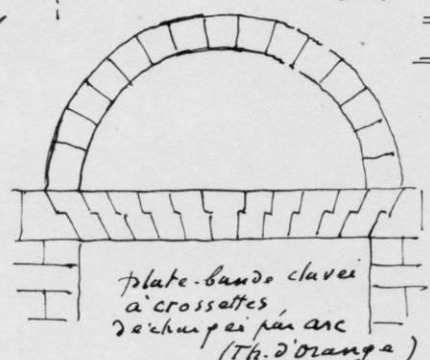 plate-bande clavée
à crossettes
déchargée par arc
(Th. d'Orange)